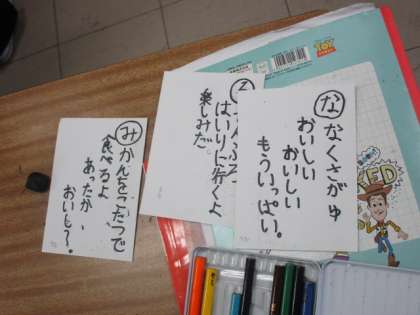 ななくさがゆ
おいしい
おいしい
もういっぱい。
はいりに行くよ
楽しみだ。
みかんをこたつで
食べるよ
あったか、
おいし〜。
TOY